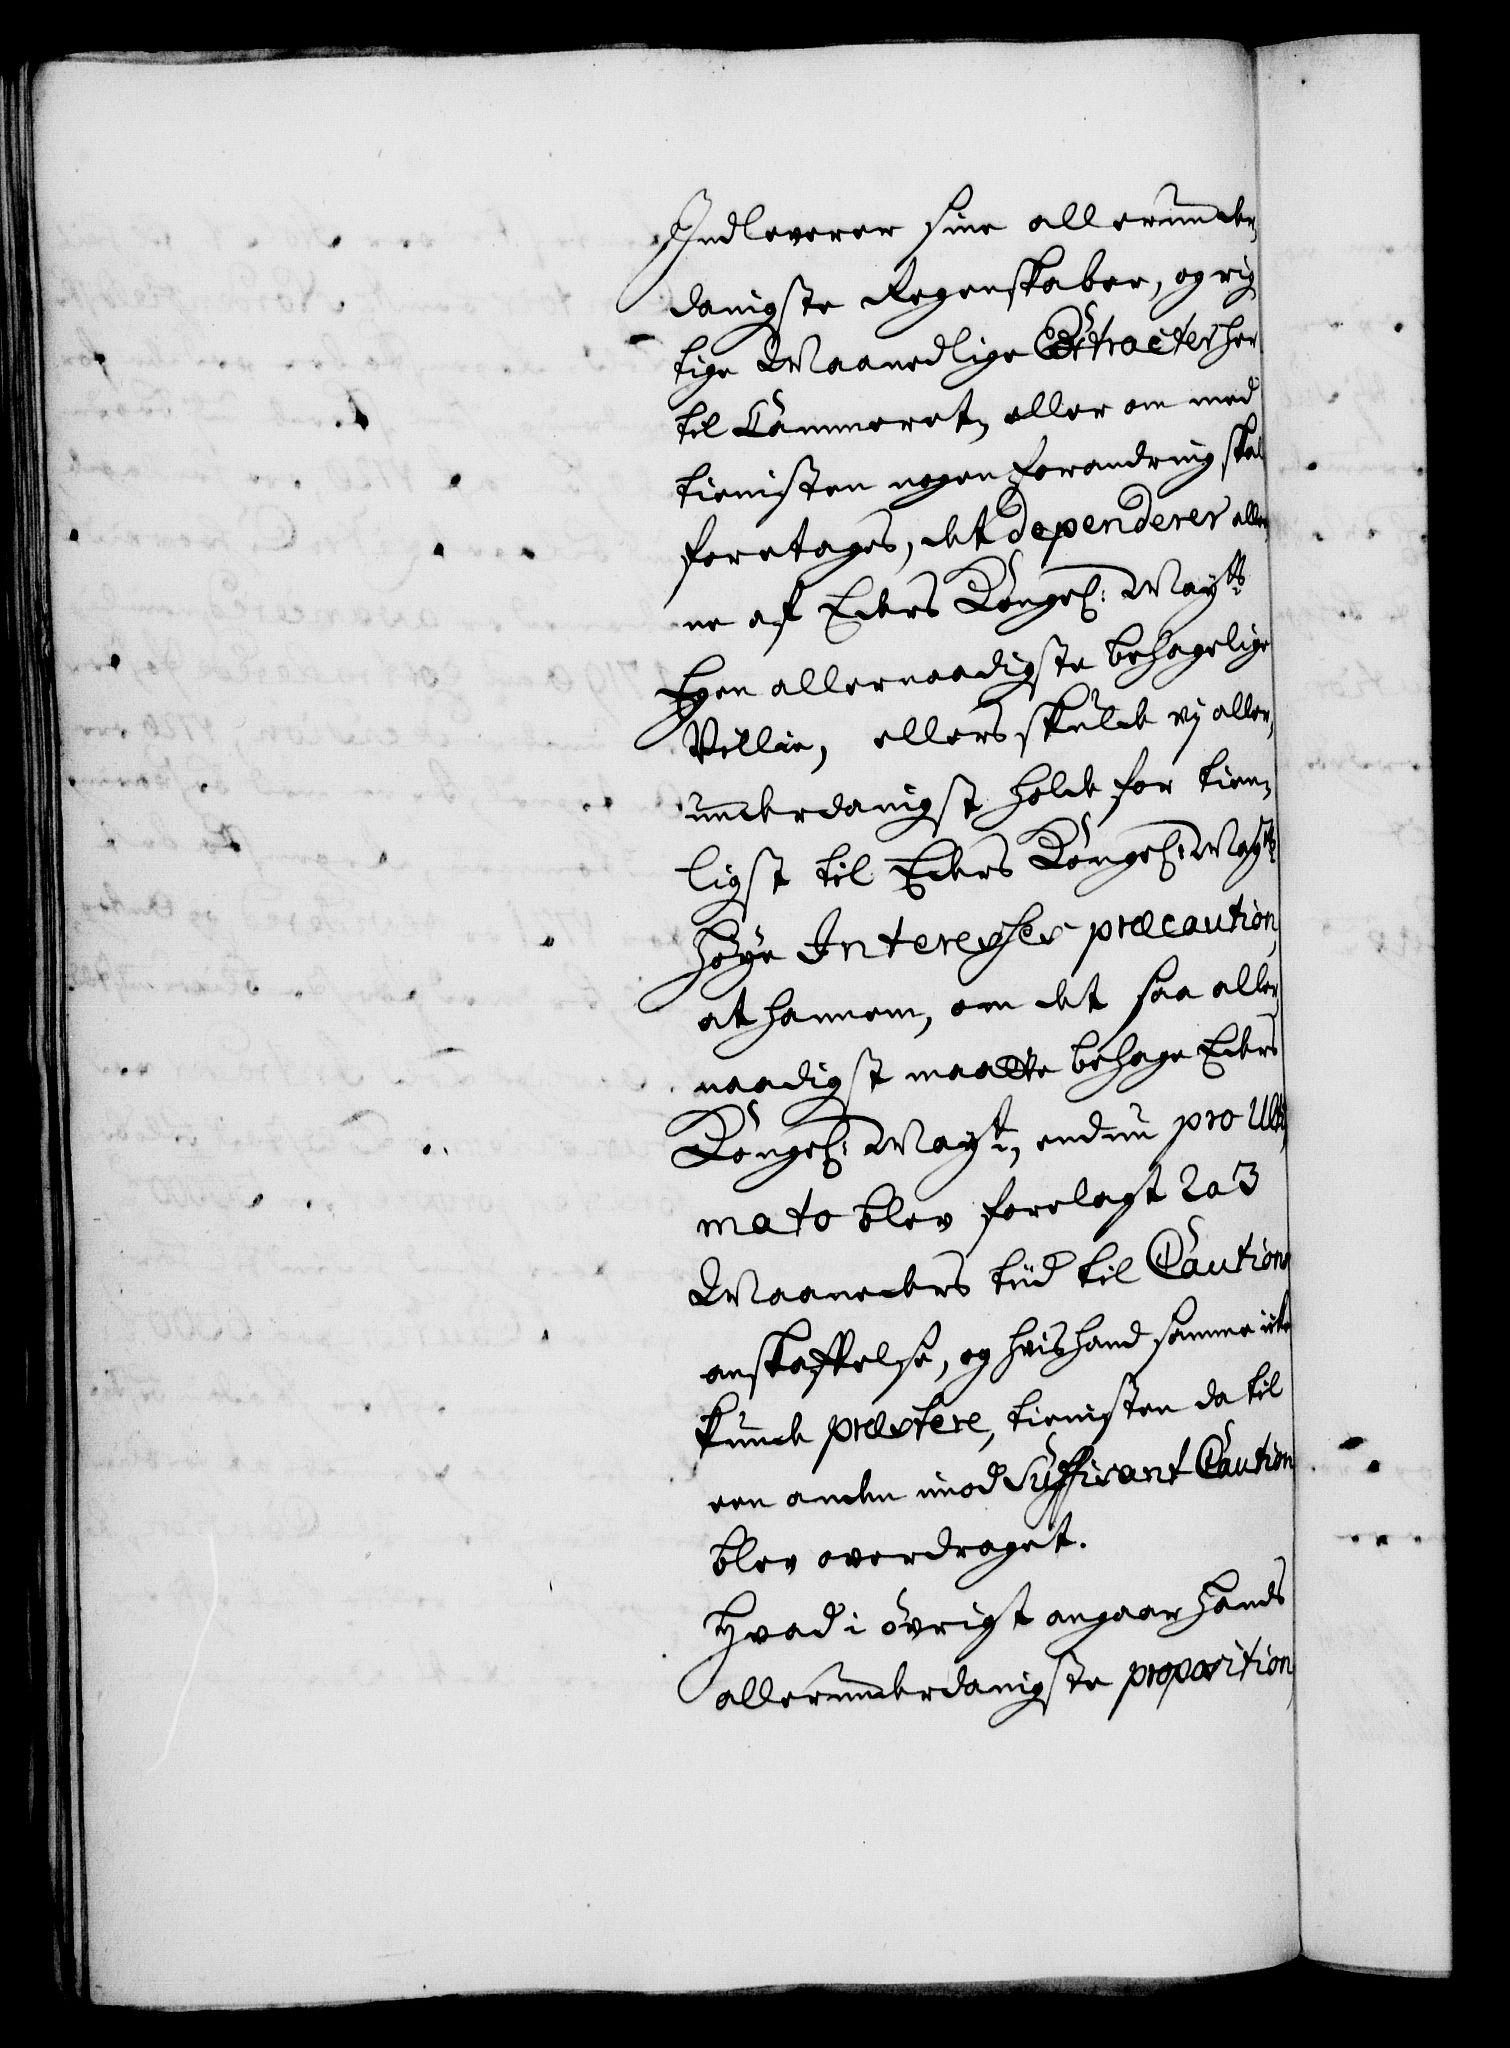 Indleverer sine allerunder,
danigste Regenskaber, og rig
tige Maanedlige Extracter her
til Cammeret, eller om med
tienisten nogen forandring skal
foretages, det dependerer alle,
ne af Eders Kongel: May:tts
Egen allernaadigste behagelige
Villie, ellers skulde vj aller,
underdanigst holde for tien,
ligst til Eders Kongel: May:tts
høye Interesses præcaution,
at hannem, om det saa aller,
naadigst maatte behage Eders
Kongel: May:t, endnu pro Ulti,
mato blev forelagt 2 a 3
Maaneders tiid til Cautions
anskaffelse, og hvis hand samme icke
kunde præstere, tienisten da til
een anden imod Suffisant Caution
blev overdraget.
Hvad i øvrigt angaar hands
allerunderdanigste proposition,